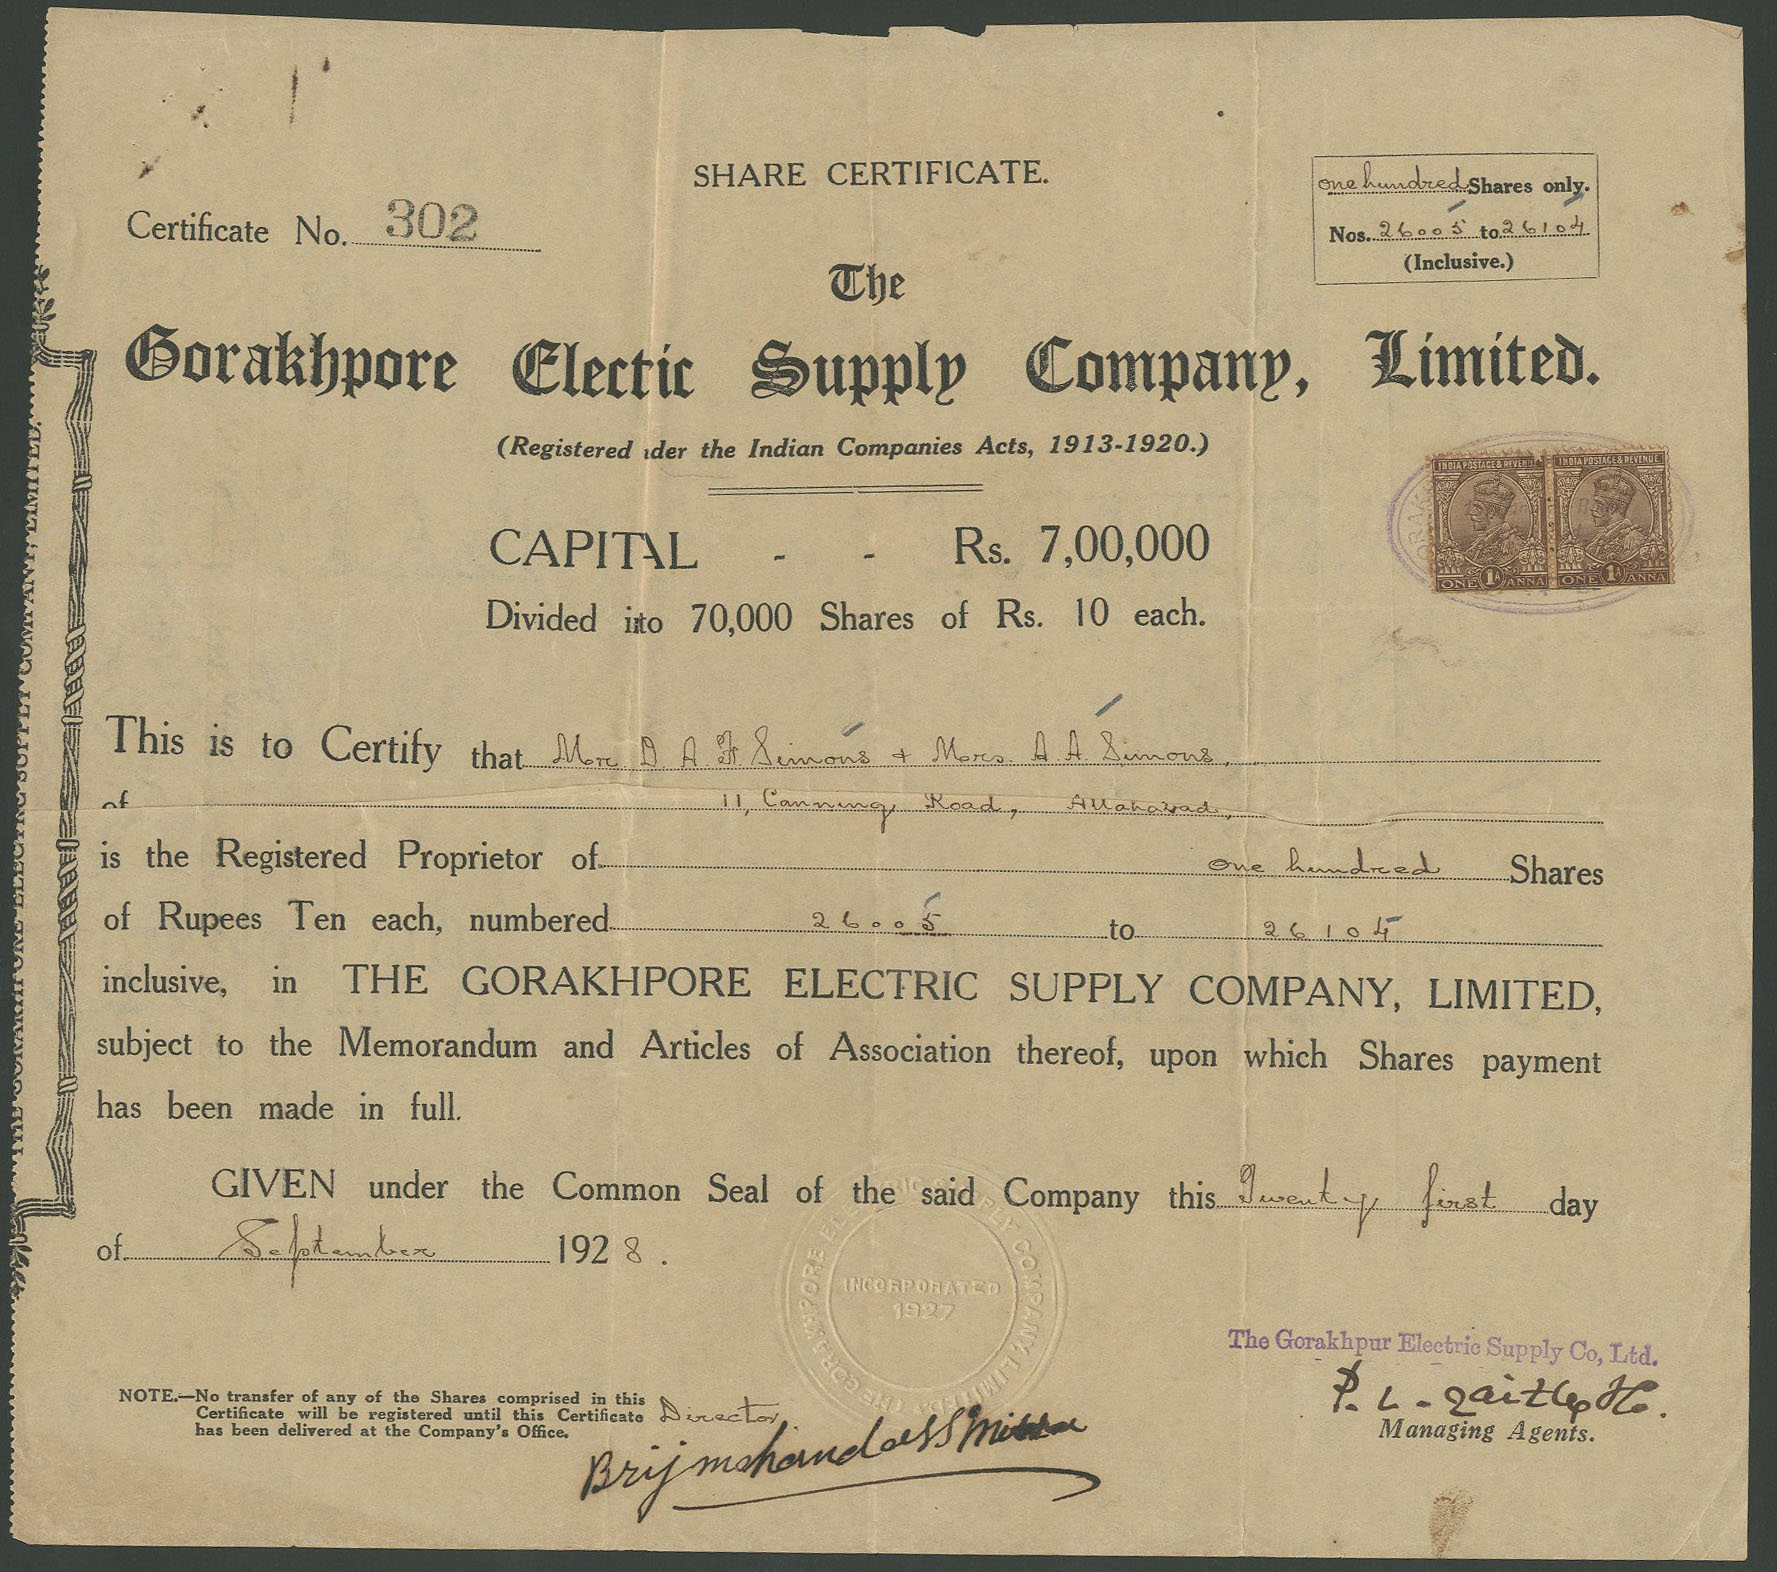 SHARE CERTIFICATE.
Certificate No. 302
one hundred Shares only.
Nos. 26005 to 26104
(Inclusive.)
The
Gorakhpore Electic Supply Company, Limited.
(Registered der the Indian Companies Acts, 1913-1920.)
INDIA POSTAGE & REVENUE INDIA POSTAGE & REVENUE
ONE 1A ANNA ONE 1A ANNA
CAPITAL - - Rs. 7,00,000
Divided into 70,000 Shares of Rs. 10 each.
This is to Certify that Mr. D. A. F. Simons & Mrs. A. A. Simons,
of 11, Canning Road, Allahabad,
is the Registered Proprietor of one hundred Shares
of Rupees Ten each, numbered 26005 to 26104
inclusive, in THE GORAKHPORE ELECTRIC SUPPLY COMPANY, LIMITED,
subject to the Memorandum and Articles of Association thereof, upon which Shares payment
has been made in full.
GIVEN under the Common Seal of the said Company this Twenty first day
of September 1928.
THE GORAKHPORE ELECTRIC SUPPLY COMPANY LIMITED
INCORPORATED
1927
The Gorakhpur Electric Supply Co, Ltd.
P. L.
Managing Agents.
NOTE.—No transfer of any of the Shares comprised in this
Certificate will be registered until this Certificate
has been delivered at the Company's Office.
Director
THE GORAKHPORE ELECTRIC SUPPLY COMPANY, LIMITED.